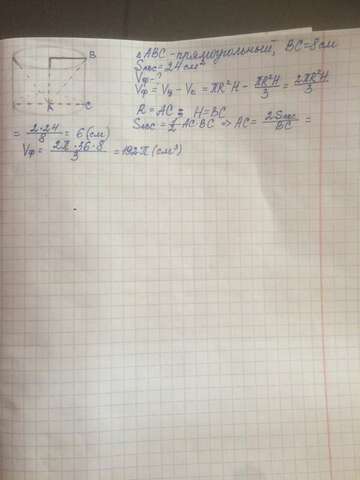 △ABC - прямоугольный, BC=8см
Sавс=24см²
Vф-?
Vф = Vц - Vк = πR²H - πR²H/3 = 2πR²H/3
R = AC; H=BC
Sавс = 1/2 AC·BC => AC = 2Sавс/BC =
= 2·24/8 = 6(см)
Vф = 2π·36·8/3 = 192π(см³)
B
C